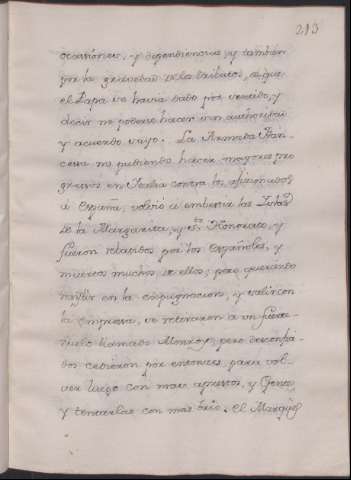 213
ocasiones, y dependencias, y tambien
por la gravedad de la
el Papa se havia dado por vencido, y
decir no poderse hacer sin autoridad
y acuerdo suyo. La Armada Fran-
cesa no pudiendo hacer mayores pro
gresos en Italia contra los aficionados
á España, volvió á embestir las Islas
de la Margarita, y Sto. Honorato, y
fueron rebatidos por los Españoles, y
muertos muchos de ellos; pero queriendo
en la expugnacion, y salir con
la empresa, se retiraron a un Puerte-
zuelo llamado pero desconfia-
dos cedieron por entonces, para vol-
ver luego con mas aprestos, y Gente,
y tentarlas con mas brio. El Marqués